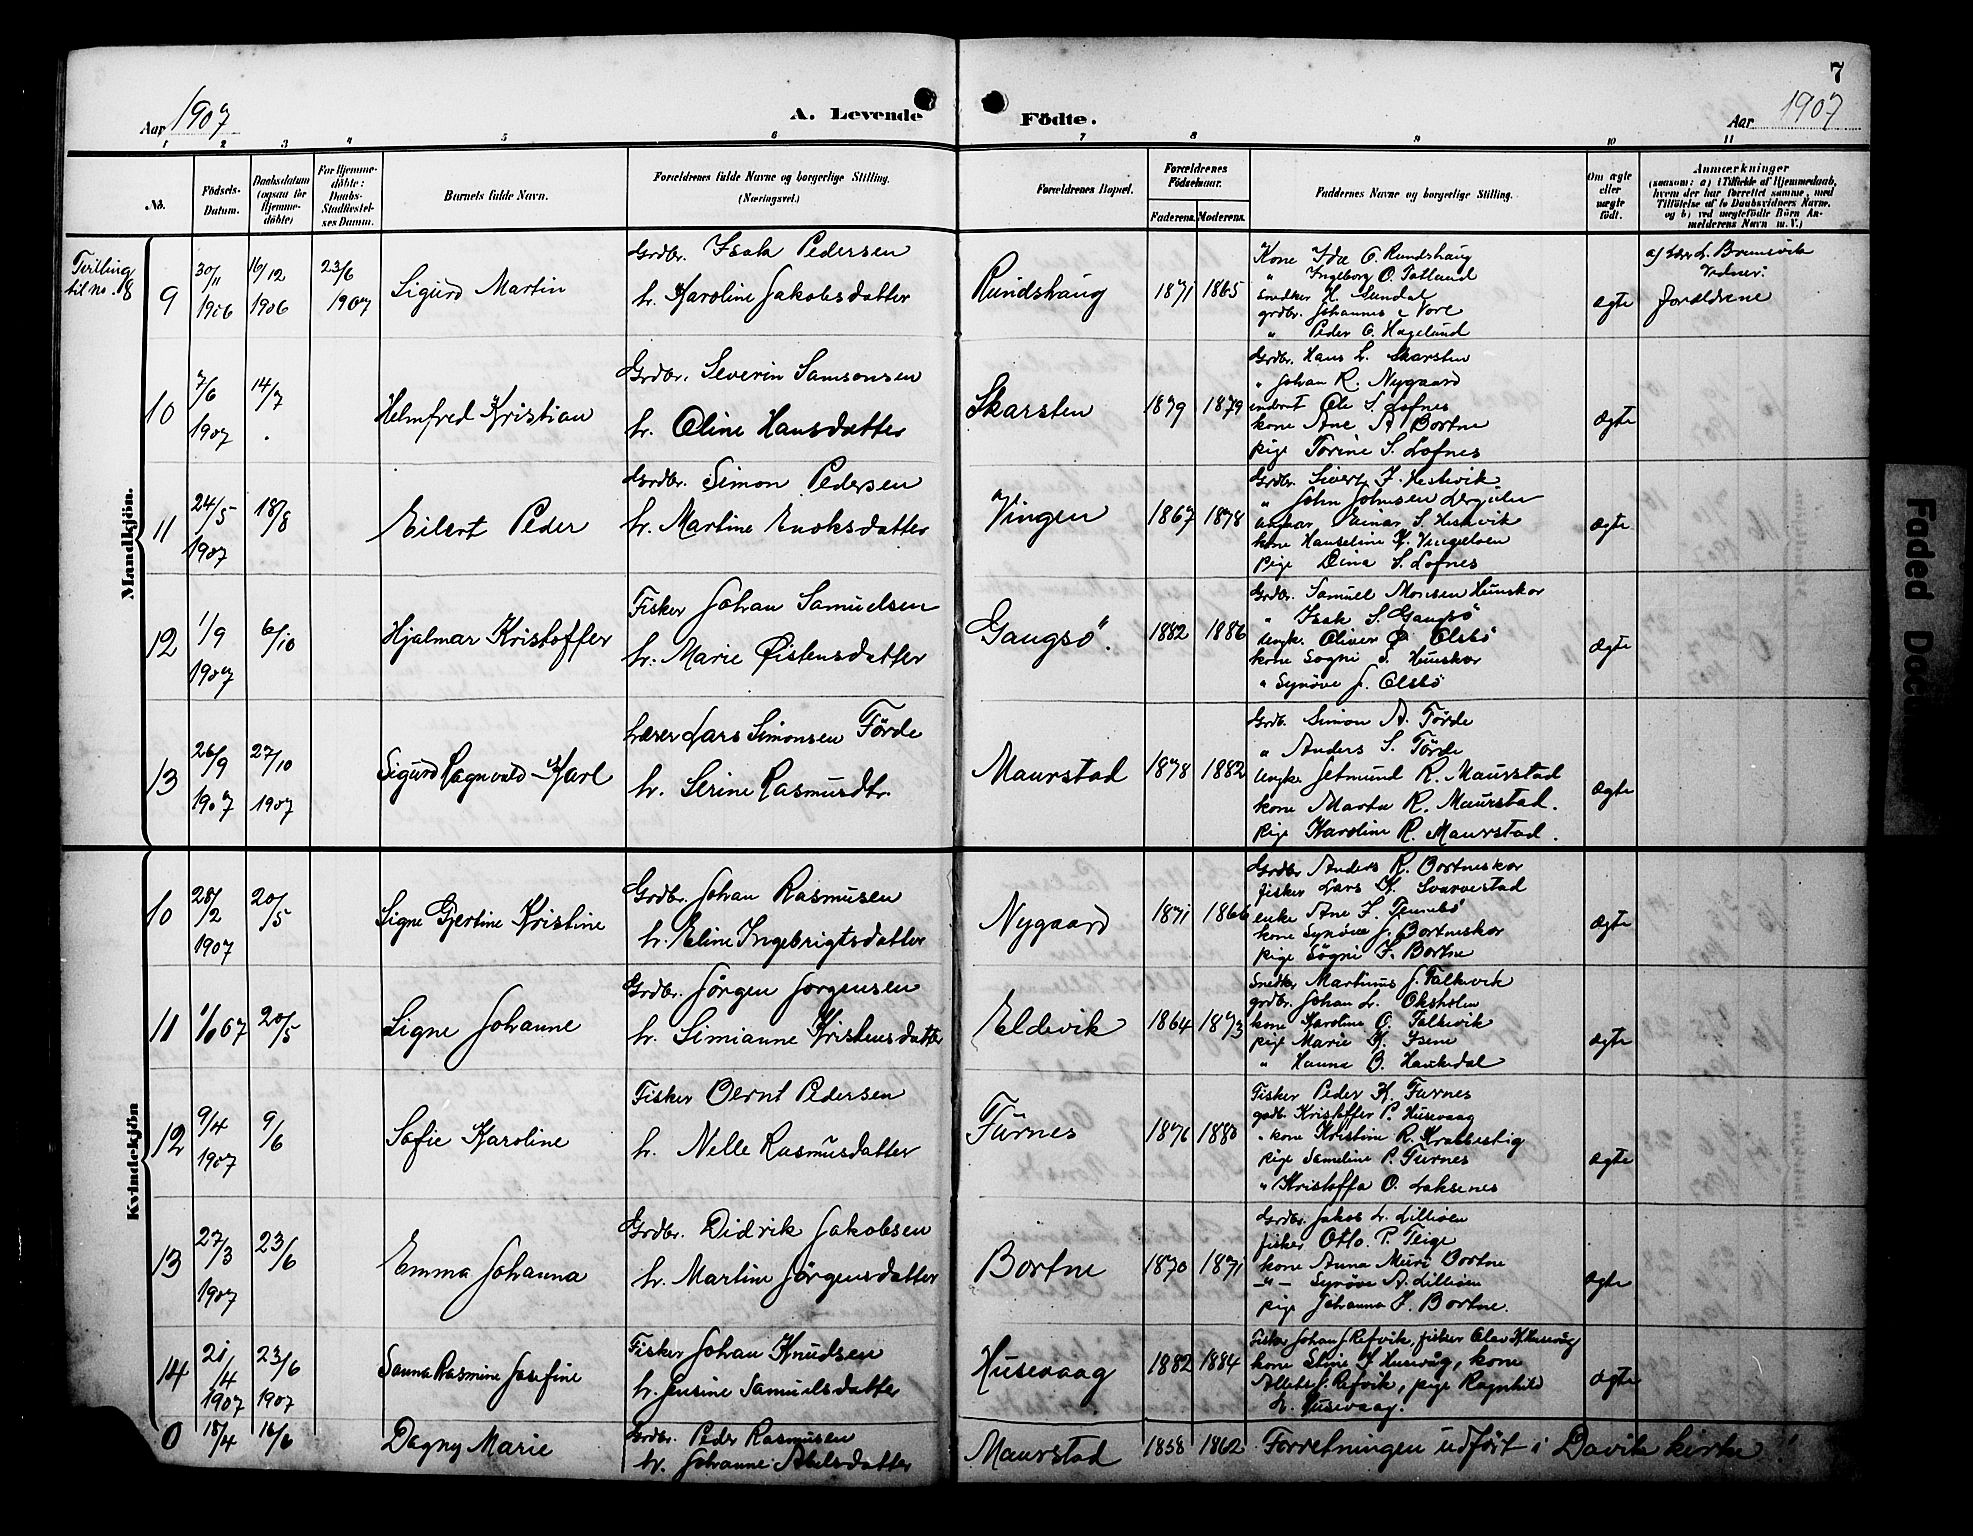 7
Aar 1907
A. Levende
Födte.
Aar 1907
1 2 3 4 5 6 7 8 9 10 11
No.
Födsels-
Datum.
Daabsdatum
(ogsaa for
Hjemme-
döbte)
For Hjemme-
döbte:
Daabs-
Stadfæstel-
ses Datum.
Barnets fulde Navn.
Forældrenes fulde Navne og borgerlige Stilling.
(Næringsvei.)
Forældrenes Bopæl.
Forældrenes
Födselsaar.
Faderens. Moderens.
Faddernes Navne og borgerlige Stilling.
Om ægte
eller
uægte
födt.
Anmærkninger
(saasom: a) i Tilfælde af Hjemmedaab,
hvem der har forrettet samme, med
Tilföielse af to Daabsvidners Navne,
og b) ved uægtefödte Börn An-
melderens Navn m. V.)
Mandkjön.
til no. 8
9
30/11 1906
16/12 1906
23/6 1907
Sigurd Martin
Grdbr. Isak Pedersen
h. Karoline Jakobsdatter
Rundshaug
1871 1865
Kone Ida O. Rundshaug
" Ingeborg O. Tatland
Snedker H. Sundal
grdbr. Johannes Vorl
" Peder O. Hagelund
ægte
forældrene
10
7/6 1907
14/7
Helmfred Kristian
Grdbr. Severin Samsonsen
h. Oline Hansdatter
Skarsten
1879 1879
Grdbr. Hans L. Skarsten
" Johan R. Nygaard
inderst Ole S. Lofnes
kone Ane A Bortne
pige Torine S. Lofnes
ægte
11
24/5 1907
18/8
Eilert Peder
Grdbr. Simon Pedersen
h. Martine Enoksdatter
Vingen
1867 1878
Grdbr. Sivert J. Hestvik
" John Johnsen
ungkar Einar S. Hestvik
kone Hanseline K. Vingelven
pige Dina S. Lofnes
ægte
12
1/9 1907
6/10
Hjalmar Kristoffer
Fisker Johan Samuelsen
h. Marie Øistensdatter
Gangsö.
1882 1886
Grdbr. Samuel Monsen Hunskor
" Isak S. Gangsö
Ungk. Oliver Ø. Olsbö
kone Sogni S. Hunskor
" Synöve J. Olsbö
ægte
13
26/9 1907
27/10 1907
Sigurd Ragnvald Karl
Lærer Lars Simonsen Förde
h. Serine Rasmusdtr.
Maurstad
1878 1882
Grdb. Simon A. Förde
" Anders S. Förde
Ungk. Getmund R. Maurstad
kone Marta R. Maurstad.
Pige Karoline R. Maurstad.
ægte
Kvindekjön
10
28/2 1907
20/5
Signe Gjertine Kristine
Grdbr. Johan Rasmusen
h. Eline Ingebrigtsdatter
Nygaard
1871 1866
Grdbr Anders R. Bortneskor
fisker Lars K. Svarvestad
enke Ane J.
kone Synöve J. Bortneskor
pige Sögni J. Bortne
ægte
11
20/5
Signe Johanne
Grdbr. Jörgen Jörgensen
h. Simianne Kristensdatter
Eldevik
1864 1873
Snedker Martinus J. Falkevik
grdbr. Johan L. Oksholm
kone Karoline O. Falkevik
pige Marie K. Isene
" Hanna B. Haukedal
ægte
12
9/4 1907
9/6
Sofie Karoline
Fisker Bernt Pedersen
h. Nelle Rasmusdatter
Furnes
1876 1880
Fisker Peder K. Furnes
grdb. Kristoffer P. Husevaag
" kone Kristine R. Krabbestig
pige Sameline P. Furnes
" Kristoffa O. Laksenes
ægte
13
27/3 1907
23/6
Emma Johanna
Grdbr. Didrik Jakobsen
h. Martine Jörgensdatter
Bortne
1870 1871
Grdbr. Jakob L. Lilleöen
fisker Otto P. Teige
kone Anna Muri Bortne
-"- Synöve A. Lilleöen
pige Johanna J. Bortne.
ægte
14
21/4 1907
23/6 1907
Sanna Rasmine Josefine
Fisker Johan Knudsen
h. Jensine Samuelsdatter
Husevaag
1882 1884
Fisker Johan J. Refvik, fisker Olav K. Husevåg
kone Stine J Husevåg, kone
Allete J. Refvik, pige Ragnhild
L. Husevaag.
ægte
0
18/4
16/6
Dagny Marie
Grdbr. Peder Rasmusen
h. Johanne Abelsdatter
Maurstad
1858 1862
Forretningen udført i Davik kirke!
Faded Doc